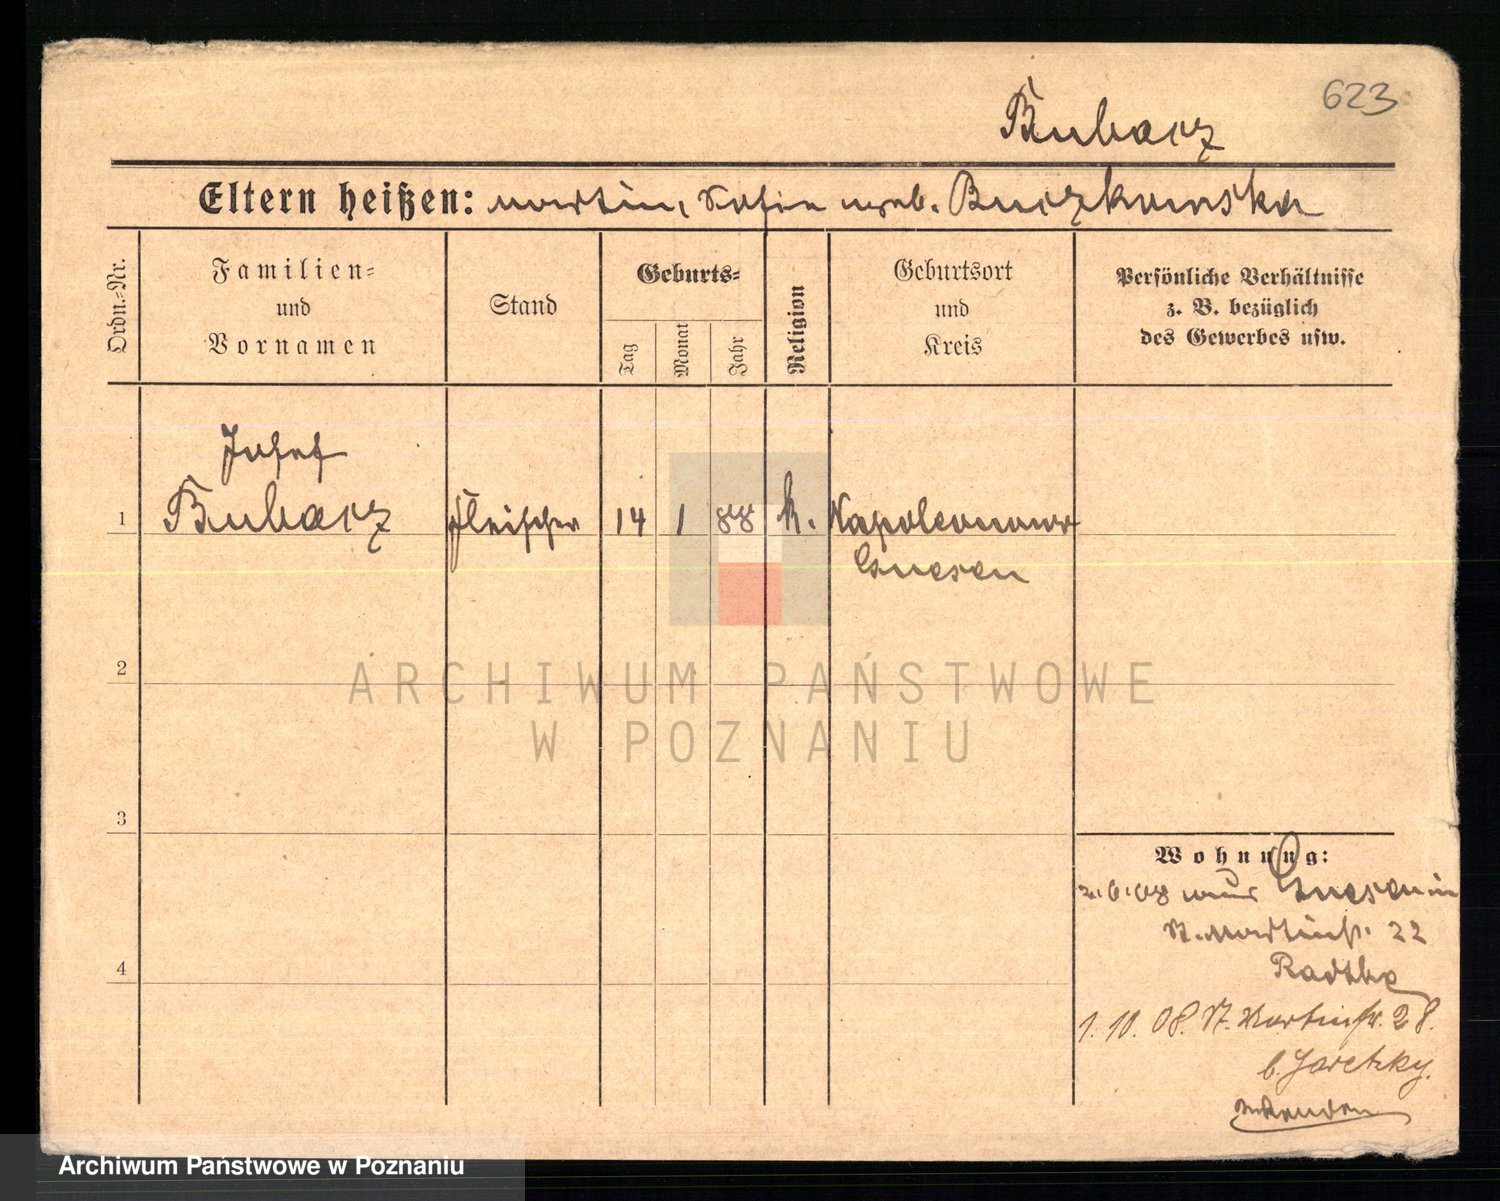 623
Bubacz
Eltern heißen: Martin, Sofie geb. Buczkowska
Ordn.-Nr.
Familien-
und
Vornamen
Stand
Geburts-
Tag
Monat
Jahr
Religion
Geburtsort
und
Kreis
Persönliche Verhältnisse
z. B. bezüglich
des Gewerbes usw.
Josef
1 Bubacz Fleischer 14 1 88 k. Napoleonowo
Gnesen
2
3
4
Wohnung:
2.6.08 aus Gnesen in
St. Martinstr. 22
Radtke
1.10.08. St. Martinstr. 28.
b. Jaretzky.
ARCHIWUM PAŃSTWOWE
W POZNANIU
Archiwum Państwowe w Poznaniu